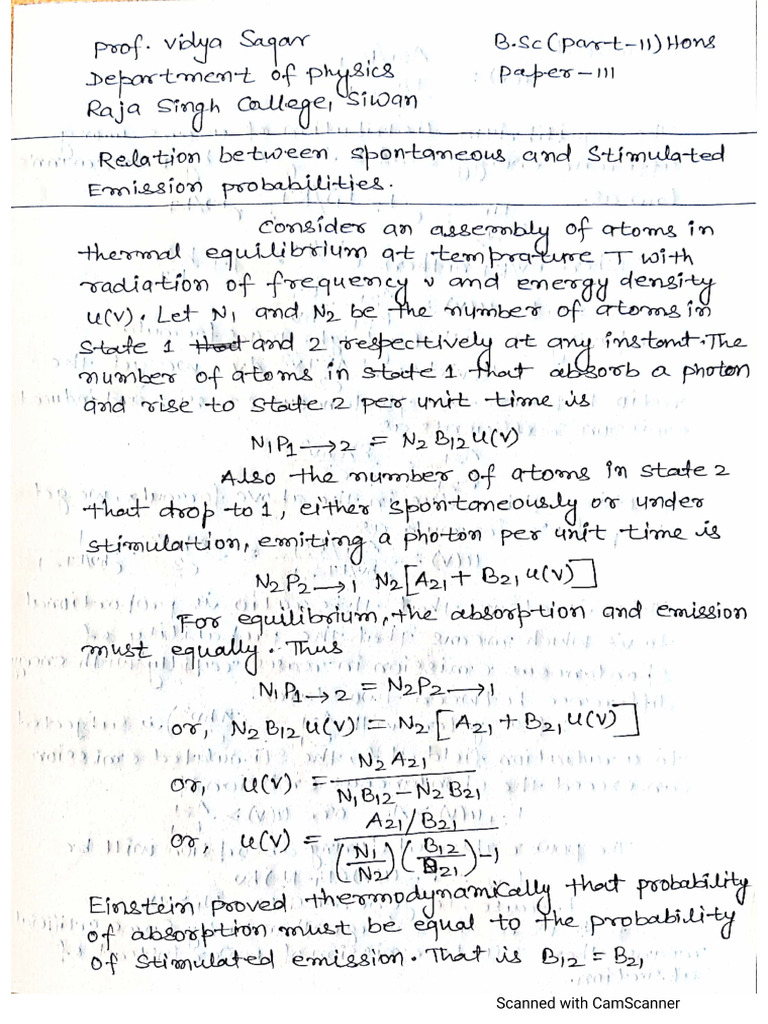 Prof. Vidya Sagar B.Sc (Part-II) Hons
Department of physics Paper-III
Raja Singh College, Siwan
Relation between spontaneous and Stimulated
Emission probabilities.
Consider an assembly of atoms in
thermal equilibrium at temprature T with
radiation of frequency ν and energy density
u(ν). Let N₁ and N₂ be the number of atoms in
state 1 that and 2 respectively at any instant. The
number of atoms in state 1 that absorb a photon
and rise to state 2 per unit time is
N₁P₁→₂ = N₂B₁₂u(ν)
Also the number of atoms in state 2
that drop to 1, either spontaneously or under
stimulation, emiting a photon per unit time is
N₂P₂→₁ N₂[A₂₁ + B₂₁u(ν)]
For equilibrium, the absorption and emission
must equally. Thus
N₁P₁→₂ = N₂P₂→₁
or, N₂B₁₂u(ν) = N₂[A₂₁ + B₂₁u(ν)]
or, u(ν) = N₂A₂₁ / N₁B₁₂ - N₂B₂₁
or, u(ν) = A₂₁/B₂₁ / (N₁/N₂)(B₁₂/B₂₁)-1
Einstein proved thermodynamically that probability
of absorption must be equal to the probability
of Stimulated emission. That is B₁₂ = B₂₁
Scanned with CamScanner